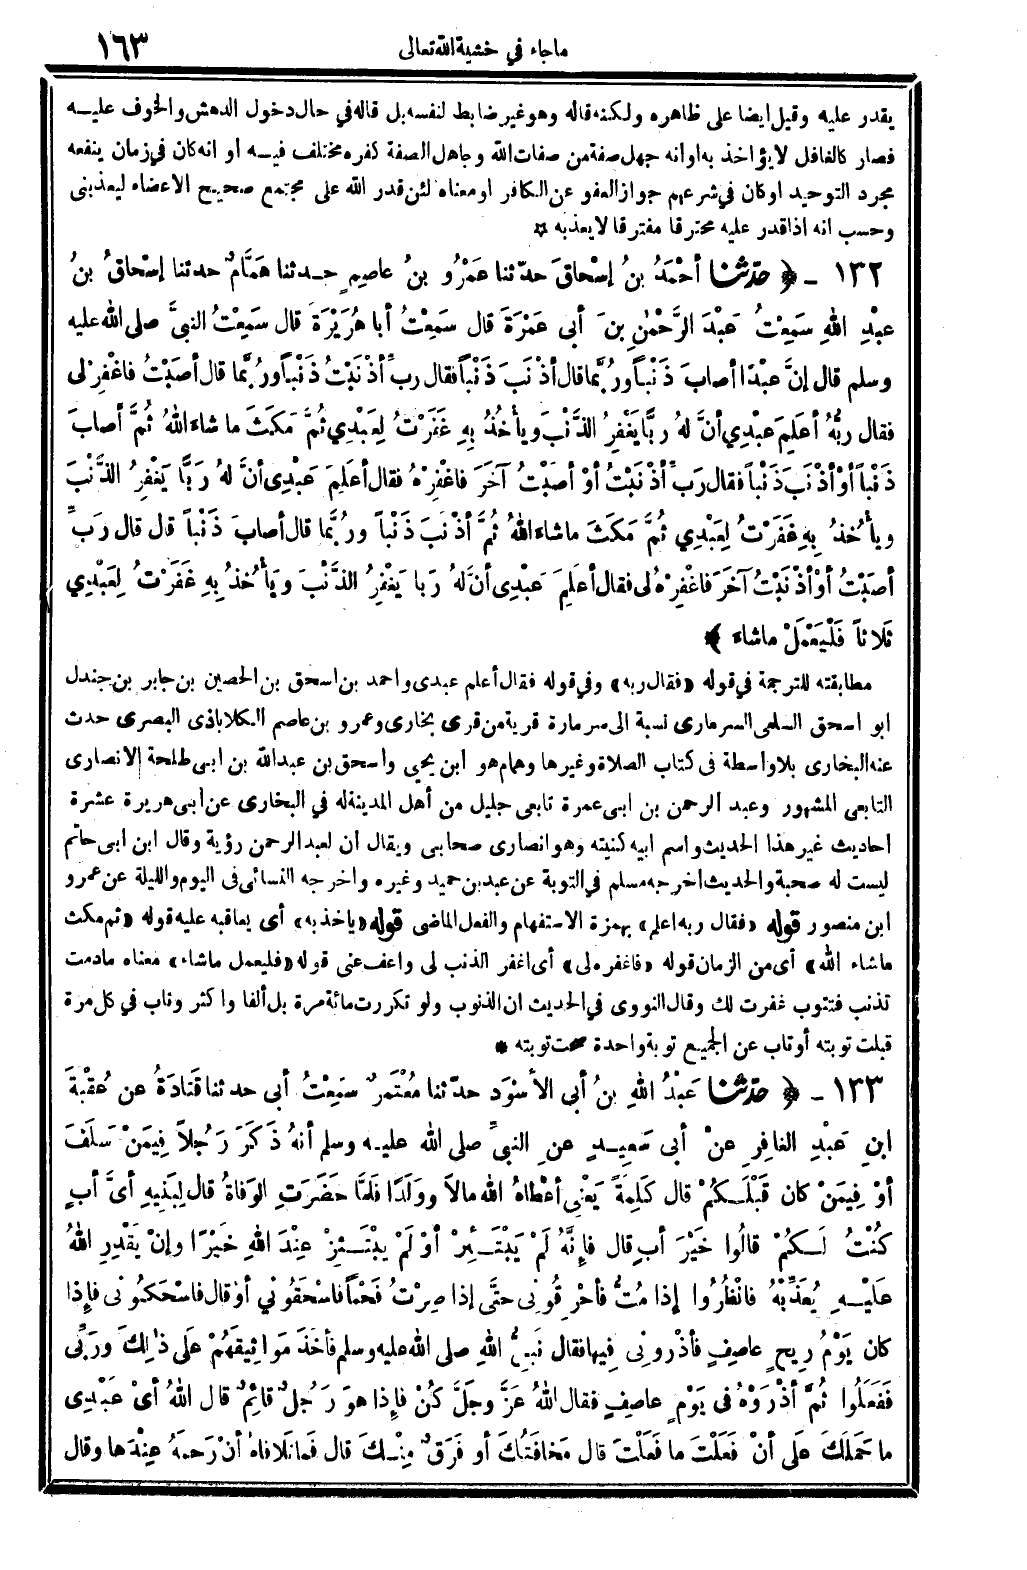 ماجاء في خشية الله تعالى ١٦٣
يقدر عليه وقيل ايضا على ظاهره ولكنه قاله وهو غير ضابط لنفسه بل قاله في حال دخول الدهش والخوف عليه
فصار كالغافل لا يؤاخذ به او انه جهل صفة من صفات الله وجاهل الصفة كفره مختلف فيه او انه كان في زمان ينفعه
مجرد التوحيد او كان في شرعهم جواز العفو عن الكافر او معناه لئن قدر الله على مجتمع صحيح الاعضاء ليعذبنى
وحسب انه اذا قدر عليه محترقا مفترقا لا يعذبه *
١٣٢ - ﴿ حدّثنا أحْمَدُ بنُ إسْحاقَ حدّثنا عَمْرُو بنُ عاصِمٍ حدثنا هَمَّامٌ حدثنا إسْحاقُ بنُ
عبْدِ اللهِ سَمِعْتُ عَبْدَ الرَّحْمٰنِ بنَ أبى عَمْرَةَ قال سَمِعْتُ أبا هُرَيْرَةَ قال سَمِعْتُ النبىَّ صلى الله عليه
وسلم قال إنَّ عبْدًا أصابَ ذَنْباً ورُبَّما قال أذْنَبَ ذَنْباً فقال ربِّ أذْنَبْتُ ذَنْباً ورُبَّما قال أصَبْتُ فاغْفِرْ لى
فقال ربُّهُ أعَلِمَ عبْدِي أنَّ لهُ ربًّا يَغْفِرُ الذَّنْبَ ويأْخُذُ بِهِ غَفَرْتُ لِعَبْدِي ثُمَّ مَكَثَ ما شاءَ اللهُ ثُمَّ أصابَ
ذَنْباً أوْ أذْنَبَ ذَنْباً فقال رَبِّ أذْنَبْتُ أوْ أصَبْتُ آخَرَ فاغْفِرْهُ فقال أعَلِمَ عَبْدِى أنَّ لهُ رَبًّا يَغْفِرُ الذَّنْبَ
ويأْخُذُ بِهِ غَفَرْتُ لِعَبْدِي ثُمَّ مَكَثَ ما شاءَ اللهُ ثُمَّ أذْنَبَ ذَنْباً ورُبَّما قال أصابَ ذَنْباً قال قال رَبِّ
أصَبْتُ أوْ أذْنَبْتُ آخَرَ فاغْفِرْهُ لى فقال أعَلِمَ عَبْدِى أنَّ لهُ رَبا يَغْفِرُ الذَّنْبَ ويَأْخُذُ بِهِ غَفَرْتُ لِعَبْدِي
ثَلاثاً فَلْيَعْمَلْ ما شاءَ ﴾
مطابقته للترجمة في قوله «فقال ربه» وفي قوله فقال أعلم عبدى واحمد بن اسحق بن الحصين بن جابر بن جندل
ابو اسحق السلمى السرمارى نسبة الى سرمارة قرية من قرى بخارى وعمرو بن عاصم الكلاباذى البصرى حدث
عنه البخارى بلا واسطة فى كتاب الصلاة وغيرها وهمام هو ابن يحيى واسحق بن عبدالله بن ابى طلحة الانصارى
التابعى المشهور وعبد الرحمن بن ابى عمرة تابعى جليل من أهل المدينة له في البخارى عن ابى هريرة عشرة
احاديث غير هذا الحديث واسم ابيه كنيته وهو انصارى صحابى ويقال ان لعبد الرحمن رؤية وقال ابن ابى حاتم
ليست له صحبة والحديث اخرجه مسلم في التوبة عن عبد بن حميد وغيره واخرجه النسائى فى اليوم والليلة عن عمرو
ابن منصور قوله «فقال ربه اعلم» بهمزة الاستفهام والفعل الماضى قوله «ياخذ به» أى يعاقبه عليه قوله «ثم مكث
ماشاء الله» أى من الزمان قوله «فاغفره لى» أى اغفر الذنب لى واعف عنى قوله «فليعمل ماشاء» معناه مادمت
تذنب فتتوب غفرت لك وقال النووى في الحديث ان الذنوب ولو تكررت مائة مرة بل ألفا واكثر وتاب في كل مرة
قبلت توبته أو تاب عن الجميع توبة واحدة صحت توبته *
١٣٣ - ﴿ حدّثنا عَبْدُ اللهِ بنُ أبى الأسْوَدِ حدّثنا مُعْتَمِرٌ سَمِعْتُ أبى حدثنا قَتادَةُ عن عُقْبَةَ
ابنِ عَبْدِ الغافِرِ عنْ أبى سَعِيدٍ عنِ النبىِّ صلى الله عليه وسلم أنهُ ذَكَرَ رَجُلاً فِيمَنْ سَلَفَ
أوْ فِيمَنْ كان قَبْلَكُمْ قال كَلِمَةً يَعْنِى أعْطاهُ الله مالاً وولَدًا فلَمَّا حضَرَتِ الوَفاةُ قال لِبَنِيهِ أىَّ أبٍ
كُنْتُ لَكُمْ قالُوا خَيْرَ أبٍ قال فإنَّهُ لَمْ يَبْتَئِرْ أوْ لَمْ يبْتَئِزْ عِنْدَ اللهِ خيْرًا وإنْ يَقْدِرِ اللهُ
علَيْهِ يُعَذِّبْهُ فانْظُرُوا إذا مُتُّ فأحْرِقُونِى حتَّى إذا صِرْتُ فَحْماً فاسْحَقُونِي أو قال فاسْحَكُونِى فإذا
كان يَوْمُ رِيحٍ عاصِفٍ فأذْرُونِى فِيها فقال نَبىُّ اللهِ صلى الله عليه وسلم فأخَذَ مَوَاثِيقَهُمْ عَلَى ذٰلِكَ ورَبِّى
فَفَعَلُوا ثُمَّ أذْرَوْهُ فى يَوْمٍ عاصِفٍ فقال اللهُ عَزَّ وجَلَّ كُنْ فإذا هوَ رَجُلٌ قائِمٌ قال اللهُ أىْ عَبْدِى
ما حَمَلَكَ عَلَى أنْ فَعَلْتَ ما فَعَلْتَ قال مَخافَتُكَ أو فَرَقٌ مِنْكَ قال فَما تَلافاهُ أنْ رَحِمَهُ عِنْدَها وقال